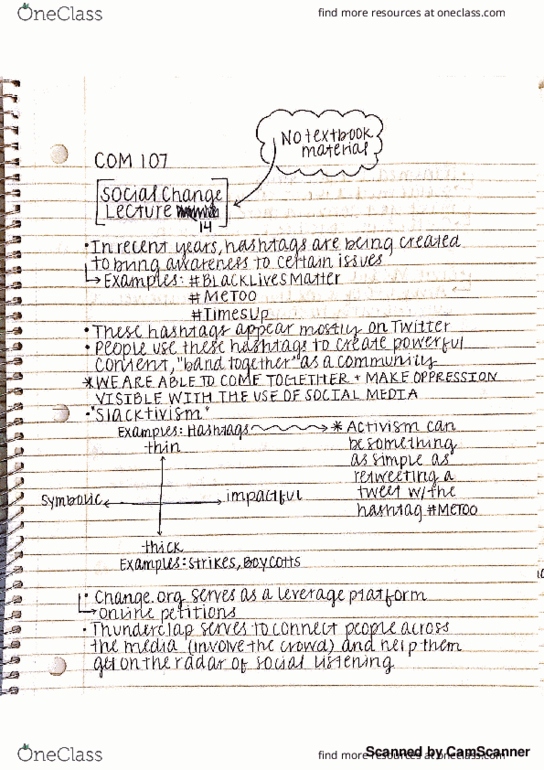 OneClass
find more resources at oneclass.com
No textbook
material
COM 107
Social Change
Lecture
14
• In recent years, hashtags are being created
to bring awareness to certain issues
↳ Examples: #BlackLivesMatter
#MeToo
#TimesUp
• These hashtags appear mostly on Twitter
• People use these hashtags to create powerful
content, "band together" as a community
* WE ARE ABLE TO COME TOGETHER + MAKE OPPRESSION
VISIBLE WITH THE USE OF SOCIAL MEDIA
• "Slacktivism"
Examples: Hashtags
* Activism can
be something
as simple as
retweeting a
tweet w/the
hashtag #MeToo
thin
Symbolic
impactful
thick
Examples: strikes, Boycotts
• Change.org serves as a leverage platform
↳ online petitions
• Thunderclap serves to connect people across
the media (involve the crowd) and help them
get on the radar of social listening.
OneClass
find more resources at oneclass.com
Scanned by CamScanner